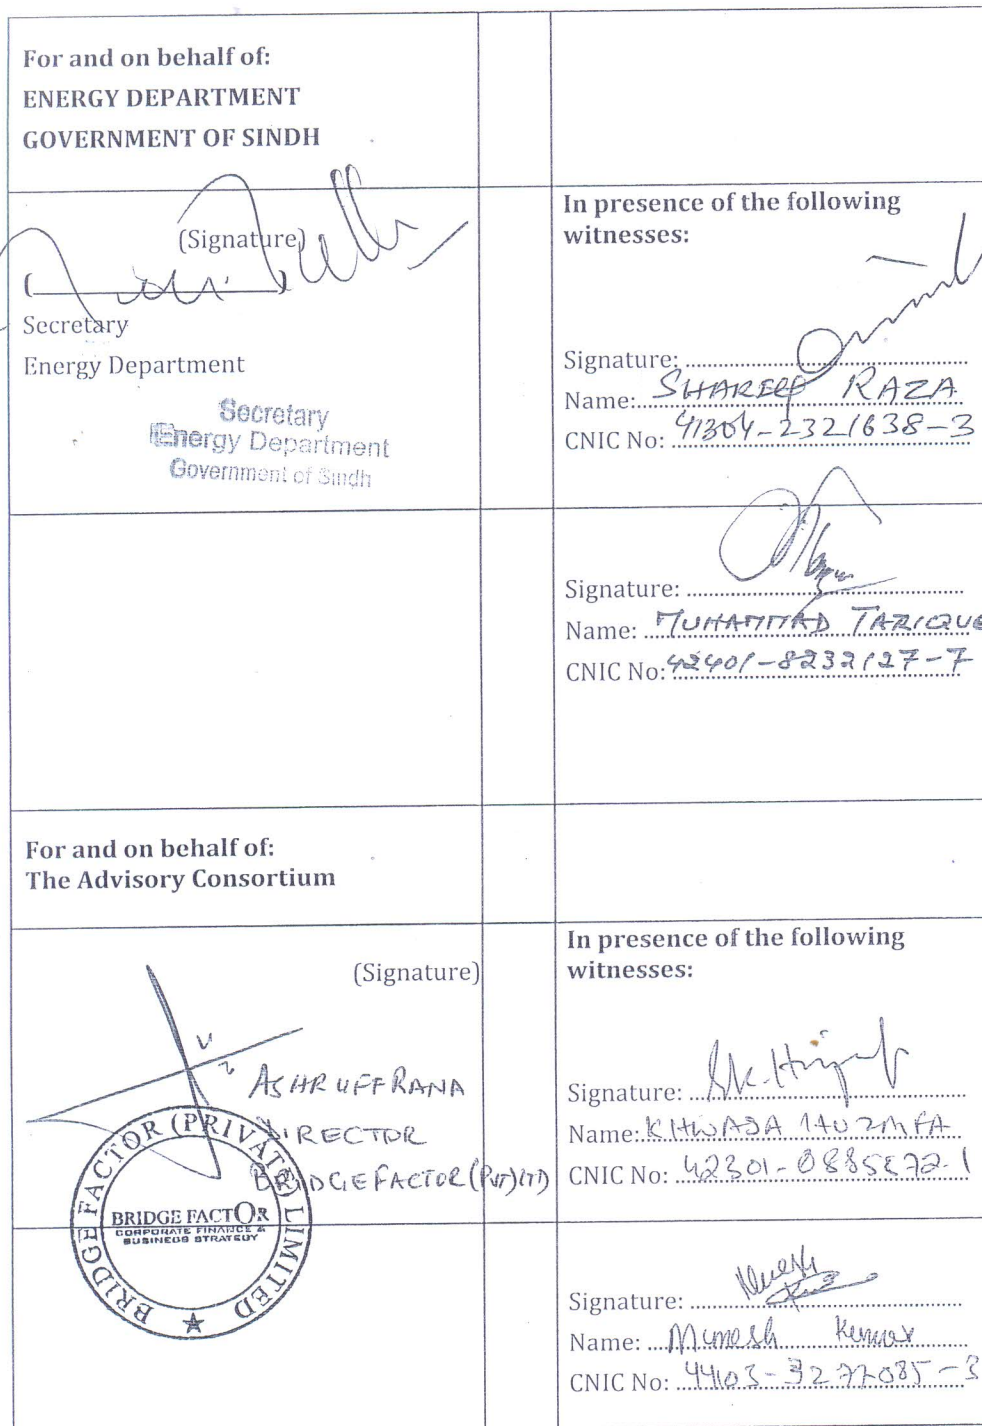 For and on behalf of:
ENERGY DEPARTMENT
GOVERNMENT OF SINDH
(Signature)
(____________________)
Secretary
Energy Department
Secretary
Energy Department
Government of Sindh
In presence of the following
witnesses:
Signature:
Name: SHAREEF RAZA
CNIC No: 41304-2321638-3
Signature:
Name: MUHAMMAD TARIQUE
CNIC No: 42401-8232127-7
For and on behalf of:
The Advisory Consortium
(Signature)
ASHRUFF RANA
DIRECTOR
BRIDGEFACTOR (Pvt) LTD
BRIDGE FACTOR (PRIVATE) LIMITED
BRIDGE FACTOR
CORPORATE FINANCE &
BUSINESS STRATEGY
In presence of the following
witnesses:
Signature:
Name: KHWAJA HUZAIFA
CNIC No: 42301-0885872-1
Signature:
Name: Munesh Kumar
CNIC No: 44103-3277085-3